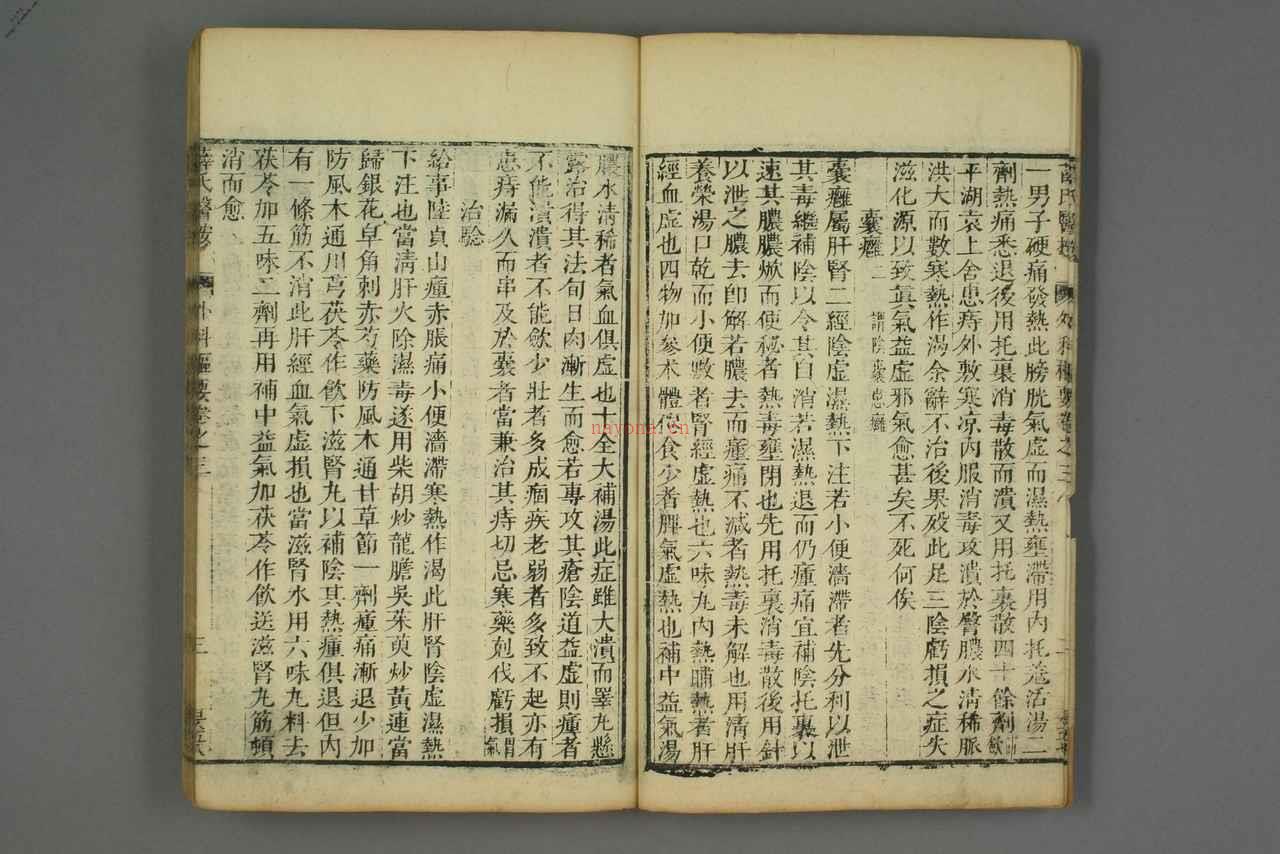 一男子硬痛發熱此膀胱氣虛而濕熱壅滯用内托羗活湯二
劑熱痛悉退後用托裏消毒散而潰又用托裏散四十餘劑飲
平湖袁上舍患痔外敷寒凉内服消毒攻潰於臀膿水清稀脈
洪大而數寒熱作渴余辭不治後果歿此足三陰虧損之症失
滋化源以致眞氣益虛邪氣愈甚矣不死何俟
囊癰二 謂陰囊患癰
囊癰屬肝腎二經陰虛濕熱下注若小便濇滯者先分利以泄
其毒繼補陰以令其自消若濕熱退而仍腫痛宜補陰托裏以
速其膿膿焮而便秘者熱毒壅閉也先用托裏消毒散後用針
以泄之膿去即解若膿去而腫痛不減者熱毒未解也用清肝
養榮湯口乾而小便數者腎經虛熱也六味丸内熱晡熱者肝
經血虛也四物加參术體倦食少者脾氣虛熱也補中益氣湯
膿水清稀者氣血俱虛也十全大補湯此症雖大潰而睪丸懸
露治得其法旬日肉漸生而愈若專攻其瘡陰道益虛則腫者
不能潰潰者不能歛少壯者多成痼疾老弱者多致不起亦有
患痔漏久而串及於囊者當兼治其痔切忌寒藥尅伐虧損胃氣
治驗
給事陸貞山腫赤脹痛小便濇滯寒熱作渴此肝腎陰虛濕熱
下注也當清肝火除濕毒遂用柴胡炒龍膽吳茱萸炒黄連當
歸銀花皁角刺赤芍藥防風木通甘草節一劑腫痛漸退少加
防風木通川芎茯苓作飲下滋腎丸以補陰其熱腫俱退但内
有一條筋不消此肝經血氣虛損也當滋腎水用六味丸料去
茯苓加五味二劑再用補中益氣加茯苓作飲送滋腎丸筋頓
消而愈
薛氏醫按 外科樞要卷之三 三
nayona.cn